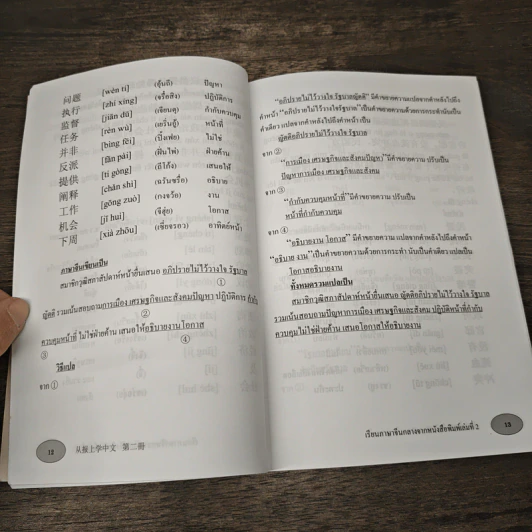 问题 [wèn tí] (อุ้นถี) ปัญหา
执行 [zhí xíng] (จรื๋อสิง) ปฏิบัติการ
监督 [jiān dū] (เจียนตุ) กำกับควบคุม
任务 [rèn wù] (เยริ่นอู้) หน้าที่
并非 [bìng fēi] (ปิ้งเฟย) ไม่ใช่
反派 [fǎn pài] (ฝั่นไพ่) ฝ่ายค้าน
提供 [tí gòng] (ถีโก้ง) เสนอให้
阐释 [chǎn shì] อธิบาย
工作 [gōng zuò] (กงจว้อ) งาน
机会 [jī huì] (จีฮุ่ย) โอกาส
下周 [xià zhōu] (เซี่ยจรอว) อาทิตย์หน้า
ภาษาจีนเขียนเป็น
สมาชิกวุฒิสภาสัปดาห์หน้ายื่นเสนอ อภิปรายไม่ไว้วางใจ รัฐบาล
①
ญัตติ รวมเน้นสอบถามการเมือง เศรษฐกิจและสังคมปัญหา ปฏิบัติการ กำกับ
②
ควบคุมหน้าที่ ไม่ใช่ฝ่ายค้าน เสนอให้อธิบายงานโอกาส
③ ④
วิธีแปล
จาก ①
12 从报上学中文 第二册
"อภิปรายไม่ไว้วางใจ รัฐบาลญัตติ" มีคำขยายความแปลจากคำหลังไปถึง
คำหน้า "อภิปรายไม่ไว้วางใจรัฐบาล" เป็นคำขยายความด้วยการกระทำนับเป็น
คำเดียว แปลจากคำหลังไปถึงคำหน้า เป็น
ญัตติอภิปรายไม่ไว้วางใจ รัฐบาล
จาก ②
"การเมือง เศรษฐกิจและสังคมปัญหา" มีคำขยายความ ปรับเป็น
ปัญหาการเมือง เศรษฐกิจและสังคม
จาก ③
"กำกับควบคุมหน้าที่" มีคำขยายความ ปรับเป็น
หน้าที่กำกับควบคุม
จาก ④
"อธิบายงาน โอกาส" มีคำขยายความ แปลจากคำหลังไปถึงคำหน้า
"อธิบาย งาน" เป็นคำขยายความด้วยการกระทำ นับเป็นคำเดียว แปลเป็น
โอกาสอธิบายงาน
ทั้งหมดรวมแปลเป็น
สมาชิกวุฒิสภาสัปดาห์หน้ายื่นเสนอ ญัตติอภิปรายไม่ไว้วางใจ รัฐบาล
รวมเน้นสอบถามปัญหาการเมือง เศรษฐกิจและสังคม ปฏิบัติหน้าที่กำกับ
ควบคุมไม่ใช่ฝ่ายค้าน เสนอโอกาสให้อธิบายงาน
เรียนภาษาจีนกลางจากหนังสือพิมพ์เล่มที่ 2 13